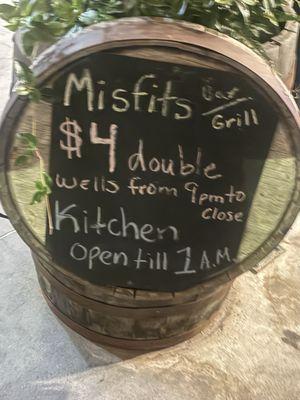 Misfits Bar/
Grill
$4 double
wells from 9pm to
close
Kitchen
open till 1 A.M.